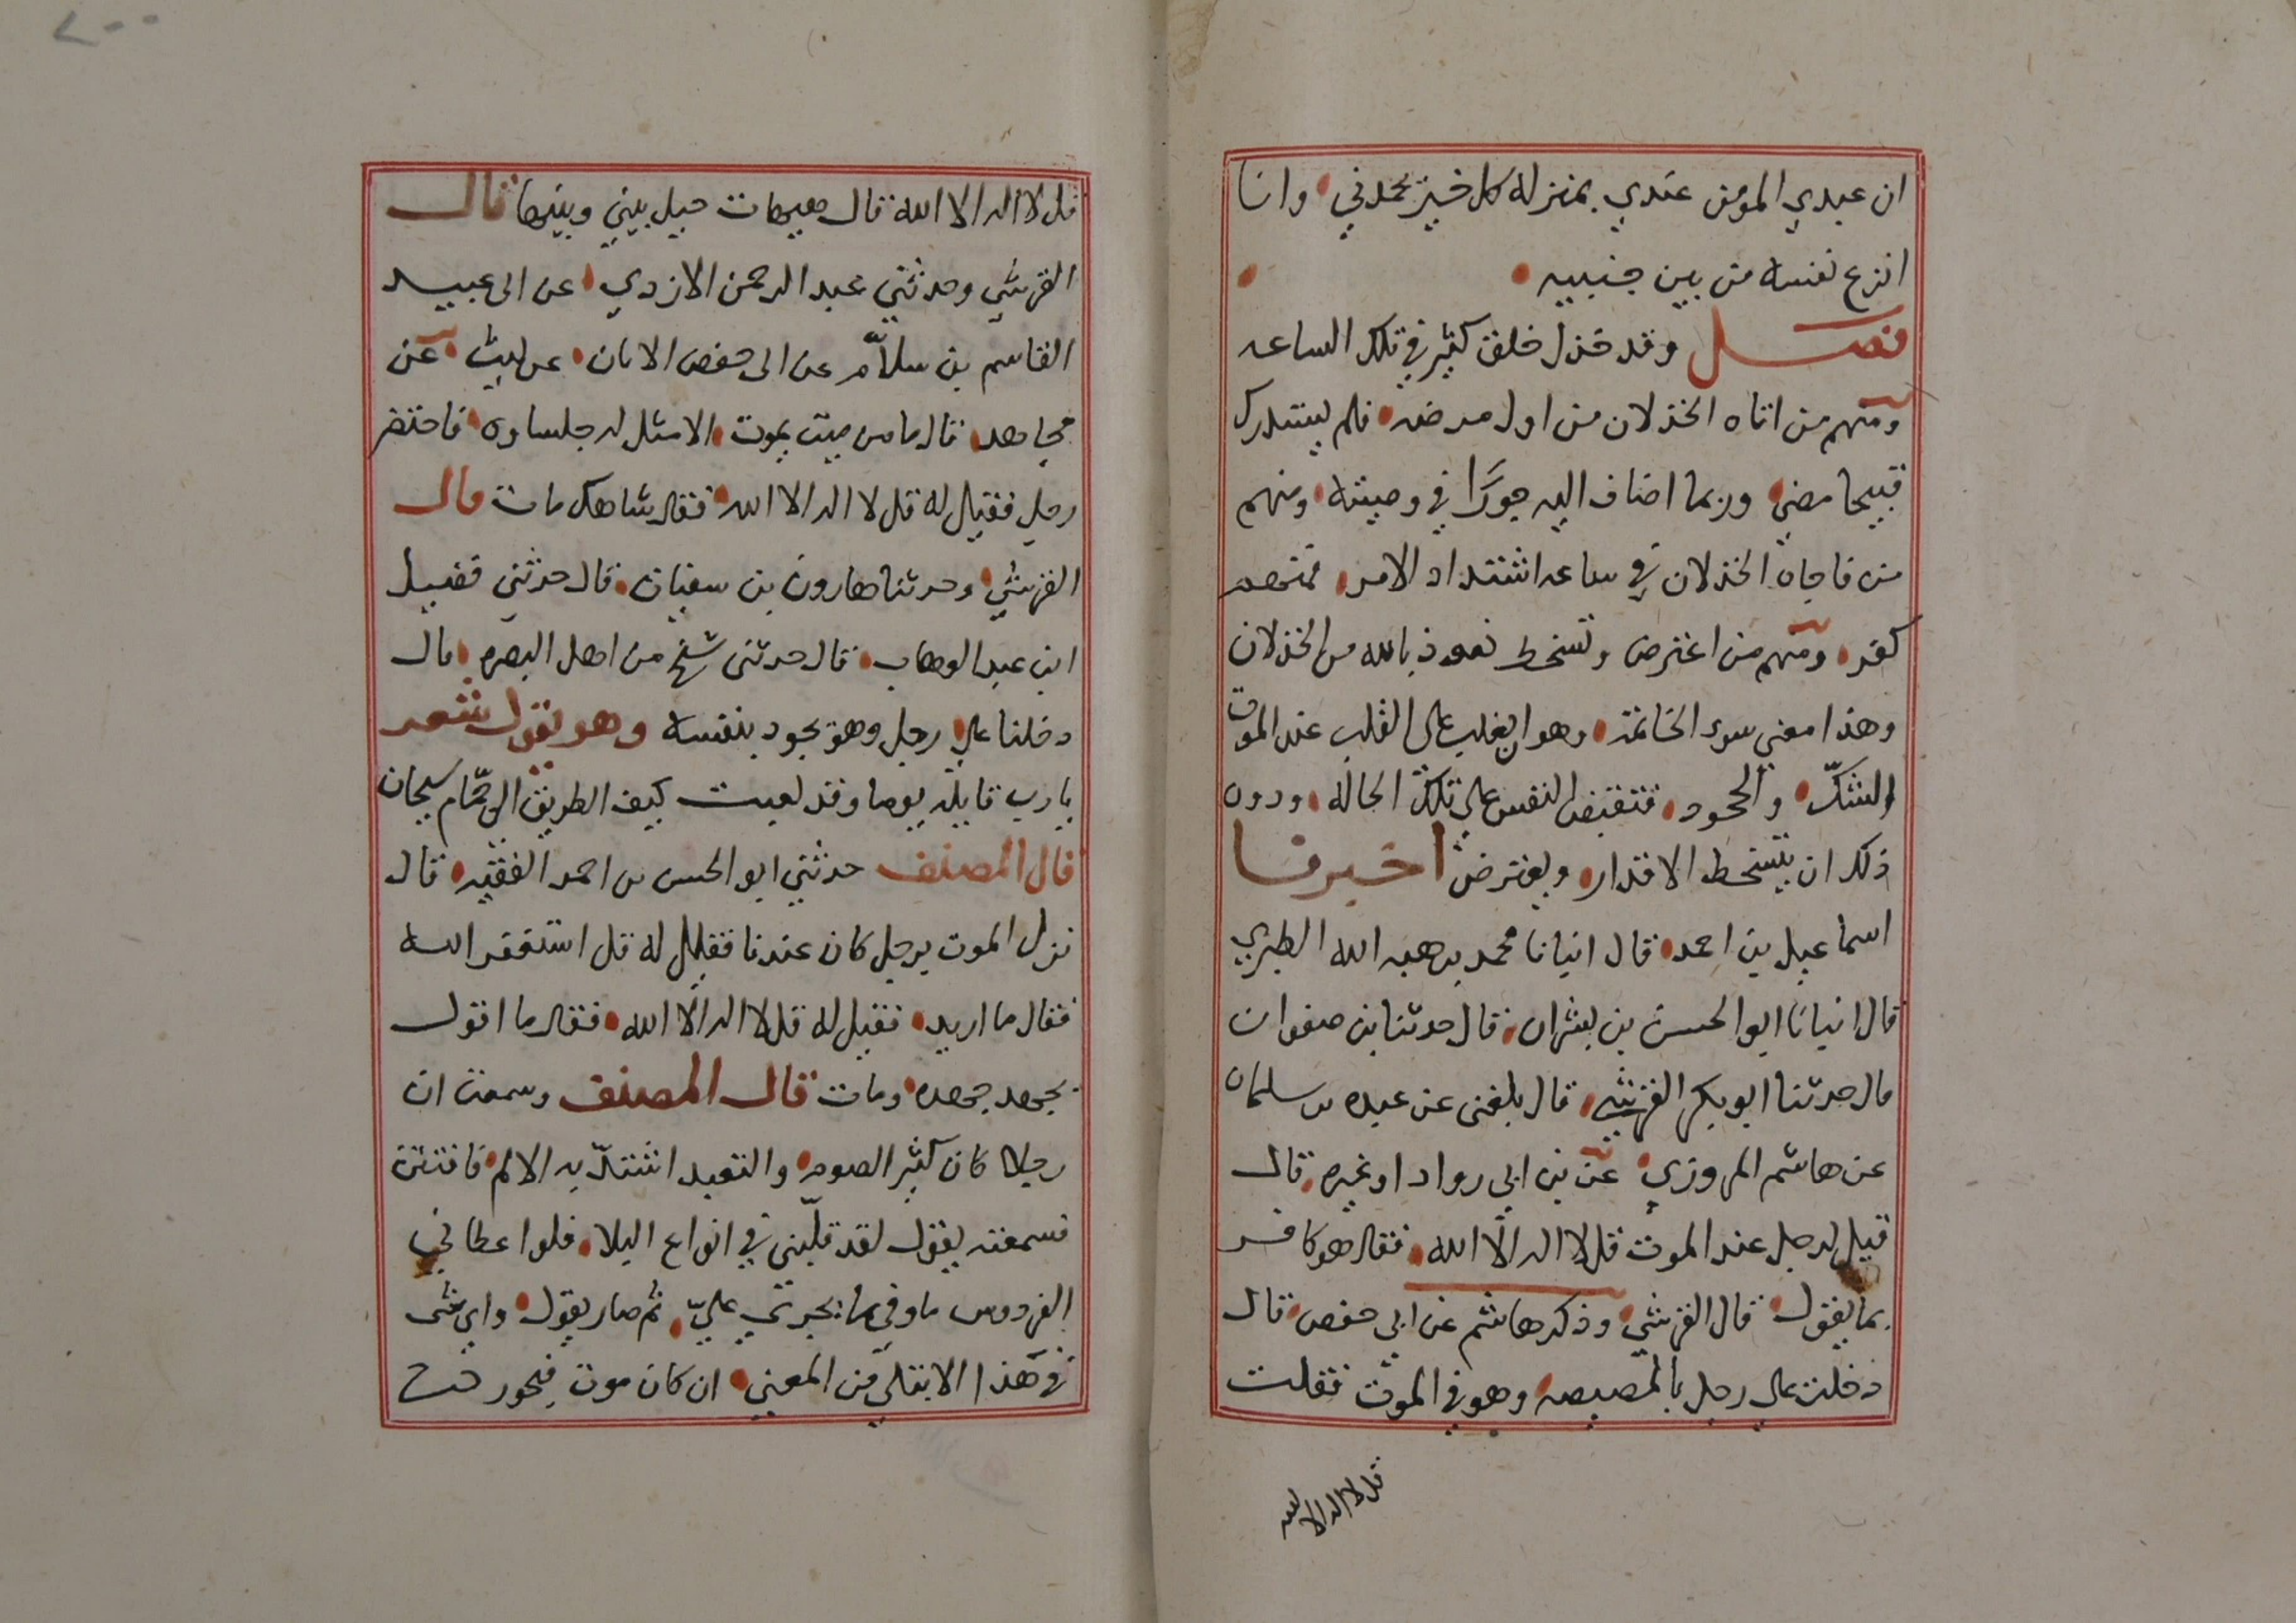 ان عبدي المومن عندي بمنزلة كل خير يحمدني وانا
انزع نفسه من بين جنبيه
فصل وقد خذل خلق كثير في تلك الساعه
ومنهم من اتاه الخذلان من اول مرضه فلم يستدرك
قبيحا مضي وربما اضاف اليه جورًا في وصيته ومنهم
من فاجاه الخذلان في ساعه اشتداد الامر فمنهم
كفر ومنهم من اعترض وتسخط نعوذ بالله من الخذلان
وهذا معني سوء الخاتمة وهو ان يغلب على القلب عند الموت
الشكّ والجحود فتقبض النفس علي تلك الحالة ودون
ذلك ان يتسخط الاقدار ويعترض اخبرنا
اسماعيل بن احمد قال انبانا محمد بن هبه الله الطبري
قال انبانا ابو الحسن بن بشران قال حدثنا بن صفوان
قال حدثنا ابو بكر القرشي قال بلغني عن عبده بن سلمان
عن هاشم المروزي عن بن ابي رواد او غيره قال
قيل لرجل عند الموت قل لا اله الا الله فقال هو كافر
بما يقول قال القرشي وذكر هاشم عن ابي حفص قال
دخلت على رجل بالمصيصه وهو في الموت فقلت
قل لا اله الا الله
قل لا اله الا الله قال هيهات حيل بيني وبينها قال
القرشي وحدثني عبد الرحمن الازدي عن ابي عبيد
القاسم بن سلاّم عن ابي حفص الابان عن ليث عن
مجاهد قال ما من ميت يموت الا مثل له جلساوه فاحتضر
رجل فقيل له قل لا اله الا الله فقال شاهك مات قال
القرشي وحدثنا هارون بن سفيان قال حدثني فضيل
ابن عبد الوهاب قال حدثني شيخ من اهل البصره قال
دخلنا علي رجل وهو يجود بنفسه وهو يقول شعر
يا رب قايلة يوما وقد لعبت كيف الطريق الي حمّام سنجان
قال المصنف حدثني ابو الحسن بن احمد الفقيه قال
نزل الموت برجل كان عندنا فقيل له قل استغفر الله
فقال ما اريد فقيل له قل لا اله الا الله فقال ما اقول
يجهد جهده ومات قال المصنف وسمعت ان
رجلا كان كثير الصوم والتعبد اشتدّ به الالم فافتتن
فسمعته يقول لقد قلّبني في انواع البلا فلو اعطاني
الفردوس ما وفي بما يجري عليّ ثم صار يقول واي شي
في هذا الابتلي من المعني ان كان موت فيجوز